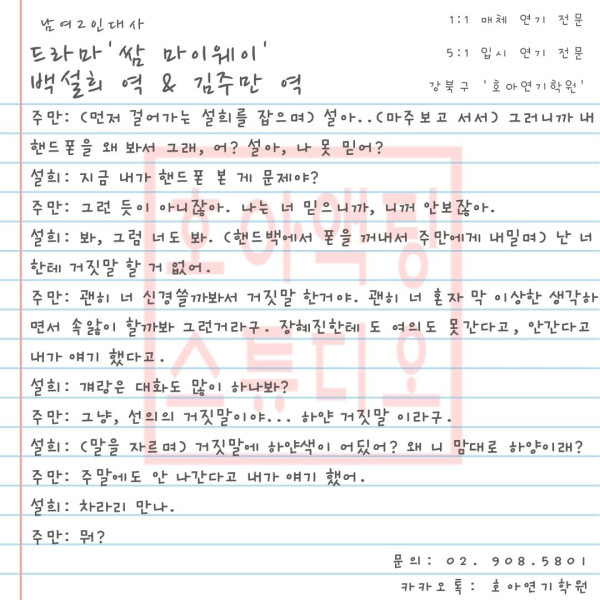 남여2인대사
1:1 매체 연기 전문
드라마'쌈 마이웨이'
5:1 입시 연기 전문
백설희 역 & 김주만 역
강북구 '호아연기학원'
주만: (먼저 걸어가는 설희를 잡으며) 설아..(마주보고 서서) 그러니까 내
핸드폰을 왜 봐서 그래, 어? 설아, 나 못 믿어?
설희: 지금 내가 핸드폰 본 게 문제야?
주만: 그런 듯이 아니잖아. 나는 너 믿으니까, 니꺼 안보잖아.
설희: 봐, 그럼 너도 봐. (핸드백에서 폰을 꺼내서 주만에게 내밀며) 난 너
한테 거짓말 할 거 없어.
주만: 괜히 너 신경쓸까봐서 거짓말 한거야. 괜히 너 혼자 막 이상한 생각하
면서 속앓이 할까봐 그런거라구. 장혜진한테 도 여의도 못간다고, 안간다고
내가 얘기 했다고.
설희: 걔랑은 대화도 많이 하나봐?
주만: 그냥, 선의의 거짓말이야... 하얀 거짓말 이라구.
설희: (말을 자르며) 거짓말에 하얀색이 어딨어? 왜 니 맘대로 하양이래?
주만: 주말에도 안 나간다고 내가 얘기 했어.
설희: 차라리 만나.
주만: 뭐?
문의: 02. 908.5801
카카오톡: 호아연기학원
호아액팅
스튜디오